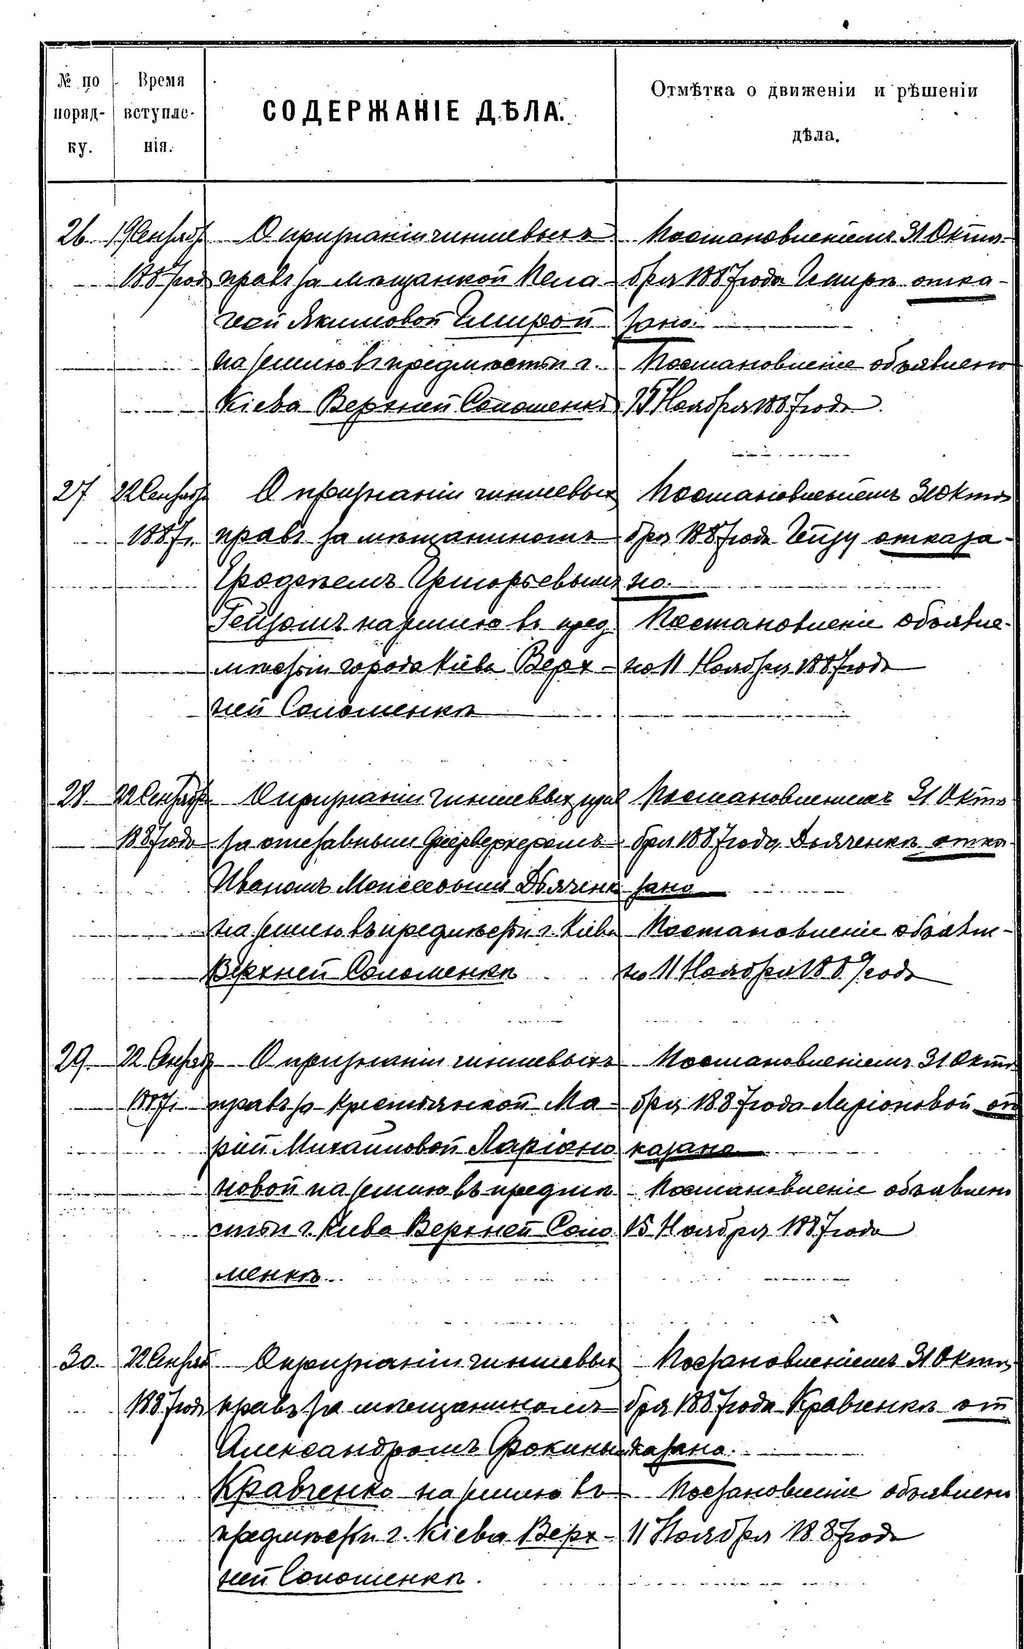 № по поряд-ку.
Время вступле-нія.
СОДЕРЖАНІЕ ДѢЛА.
Отмѣтка о движеніи и рѣшеніи дѣла.
26
19 Сентябр
1887 год
О признаніи чиншевыхъ
правъ за мѣщанкой Пела-
геей Якимовой
на землю въ предмѣстьи г.
Кіева Верхней Соломенкѣ
Постановленіемъ 31 Октя-
бря 1887 года отка-
зано.
Постановленіе объявлено
Ноября 1887 года
27
22 Сентябр
1887 г.
О признаніи чиншевых
правъ за мѣщаниномъ
Григорьевымъ
Гейзомъ на землю въ пред
мѣстьи города Кіева Верх-
ней Соломенкѣ
Постановленіемъ 31 Октя
бря 1887 года Гейзу отказа-
но.
Постановленіе объявле-
но 11 Ноября 1887 года
28.
22 Сентябр
1887 года
О признаніи чиншевых прав
за отставным фейерверкеромъ
Иваномъ Моисеевым Дьяченк
на землю въ предмѣстьи г. Кіева
Верхней Соломенкѣ
Постановленіемъ 31 Октя
бря 1887 года Дьяченкѣ отка-
зано
Постановленіе объявле-
но 11 Ноября 1887 года
29.
22 Сентяб
1887 г.
О признаніи чиншевыхъ
правъ за крестьянкой Ма-
ріей Михайловой Ларіоно
новой на землю въ предмѣ
стьи г. Кіева Верхней Соло
менкѣ
Постановленіемъ 31 Октя
бря 1887 года Ларіоновой от
казано
Постановленіе объявлено
15 Ноября 1887 года
30.
22 Сентяб
1887 года
О признаніи чиншевых
правъ за мѣщаниномъ
Александромъ Фокины
Кравченко на землю въ
предмѣстьи г. Кіева Верх-
ней Соломенкѣ.
Постановленіемъ 31 Октя
бря 1887 года Кравченкѣ от
казано.
Постановленіе объявлено
11 Ноября 1887 года